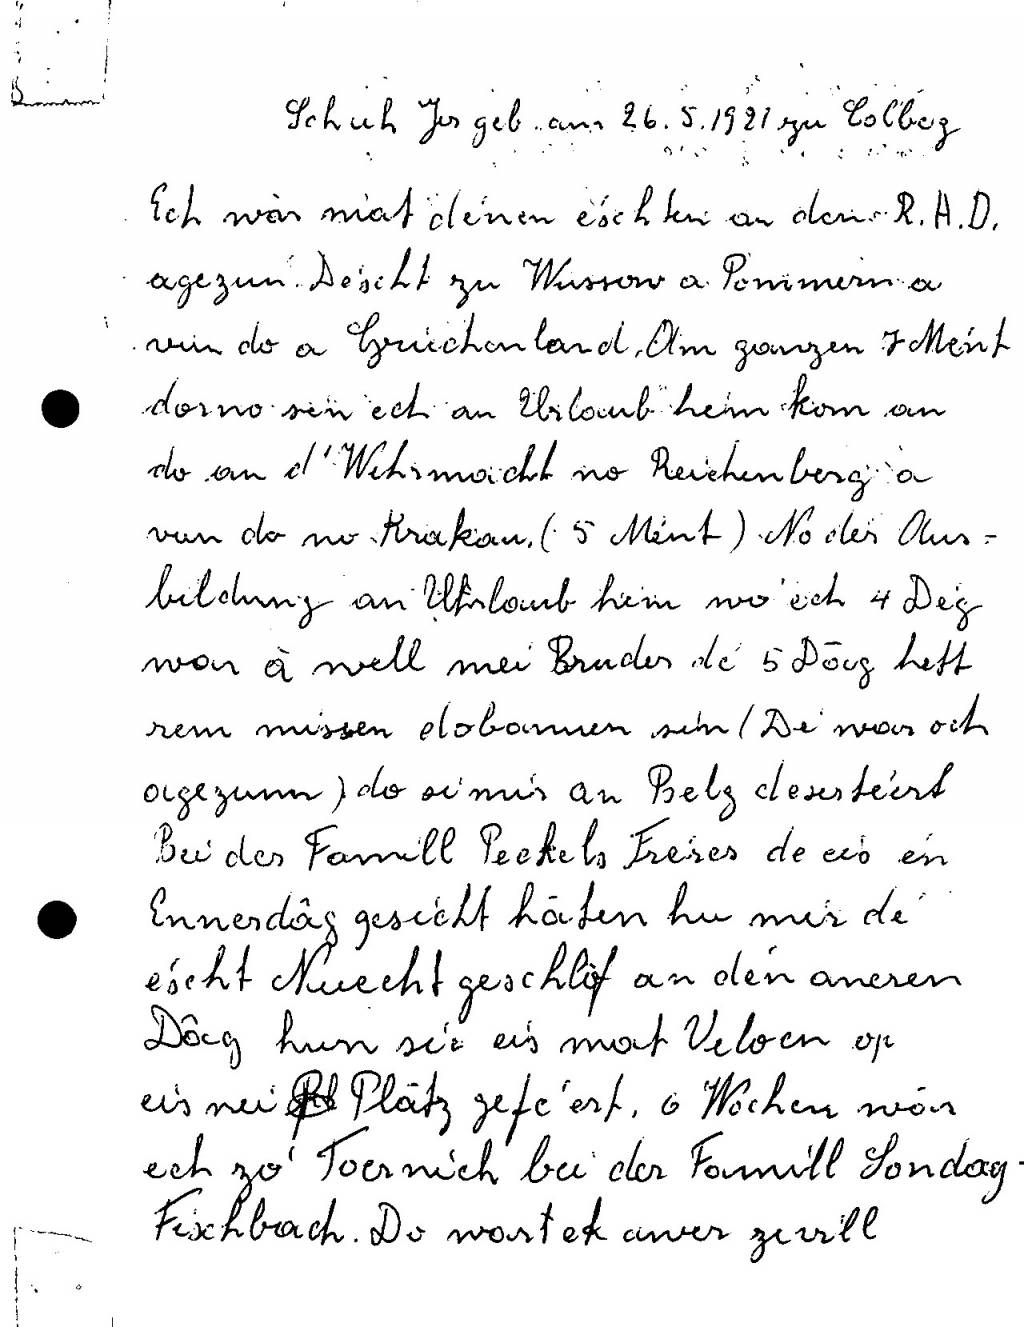 Schuh Jos geb. am 26.5.1921 zu Colbeg
Ech wór mat dénen éschten an den R.A.D.
agezun. Déscht zu Wussow a Pommern a
vun do a Griichenland. Am ganzen 7 Mént
dorno sin ech an Urlaub heim kom an
do an d'Wehrmacht no Reichenberg a
vun do no Krakau. (5 Mént) No der Aus-
bildung an Uhrlaub heim wo ech 4 Deg
wor à well mei Bruder dé 5 Dôeg hett
rem missen dobannen sin (Dé wor och
agezunn) do si mir an Belg desertéert
Bei der Famill Peckels Freres de eis én
Ennerdâg gesicht hâten hu mir dé
éscht Nuecht geschlof an dén aneren
Dôeg hun sie eis mat Veloen op
eis nei Plâtz geféert. 6 Wochen wór
ech zo' Toernich bei der Famill Sondag-
Fischbach. Do wort et awer zevill